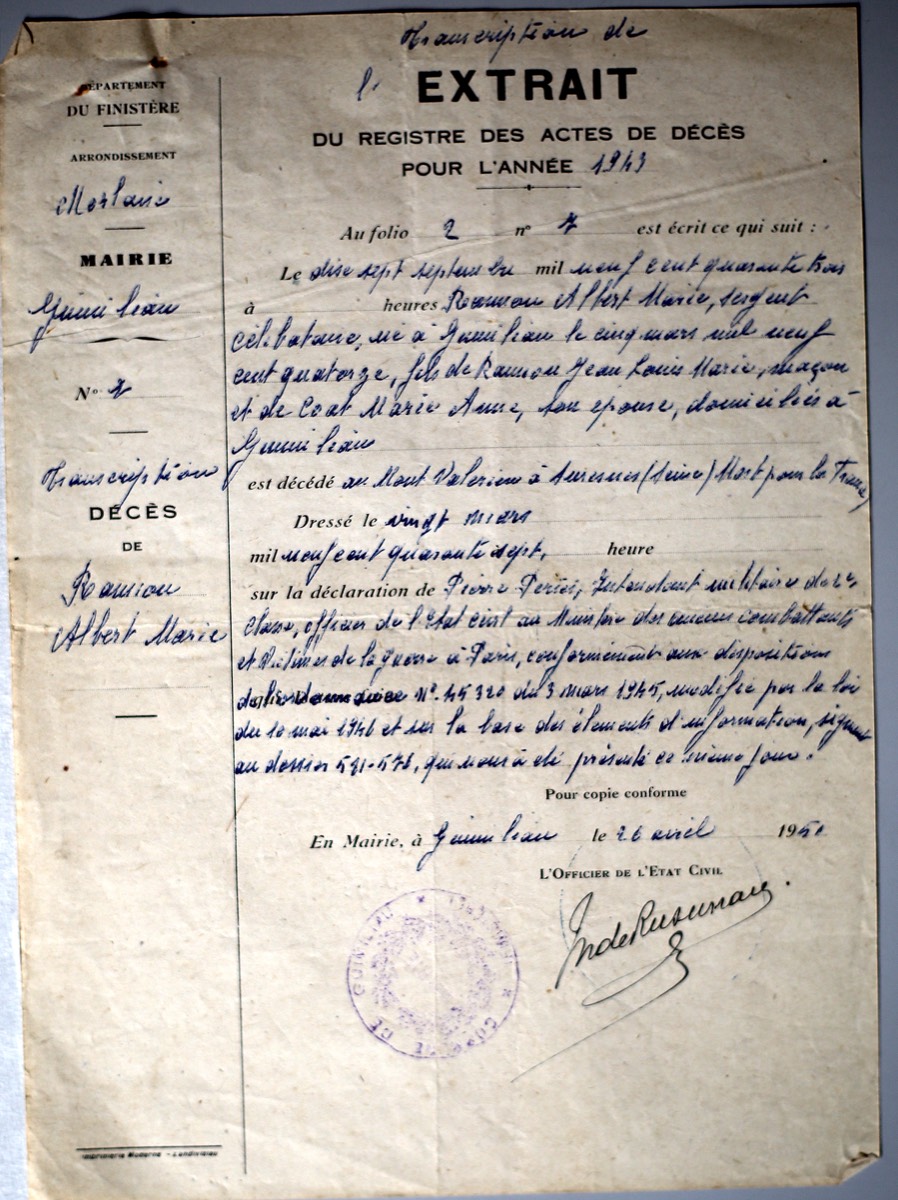 DÉPARTEMENT
DU FINISTÈRE
ARRONDISSEMENT
Morlaix
MAIRIE
Guimiliau
N° 7
Transcription
DÉCÈS
DE
Rannou
Albert Marie
Imprimerie Moderne - Landivisiau
Transcription de
l' EXTRAIT
DU REGISTRE DES ACTES DE DÉCÈS
POUR L'ANNÉE 1943
Au folio 2 n° 7 est écrit ce qui suit :
Le dix sept septembre mil neuf cent quarante trois
à heures Rannou Albert Marie, sergent
célibataire, né à Guimiliau le cinq mars mil neuf
cent quatorze, fils de Rannou Jean Louis Marie, maçon
et de Coat Marie Anne, son épouse, domiciliés à
Guimiliau
est décédé au Mont Valérien à Suresnes (Seine) Mort pour la France
Dressé le vingt mars
mil neuf cent quarante sept, heure
sur la déclaration de Pierre Intendant militaire de 2e
classe, officier de l'Etat civil au Ministère des anciens combattants
et Victimes de la guerre à Paris, conformément aux dispositions
n° 45320 du 3 mars 1945, modifié par la loi
du 10 mai 1946 et sur la base des éléments d'information,
au dossier 521-576, qui nous à été présenté ce même jour.
Pour copie conforme
En Mairie, à Guimiliau le 26 avril 1950
L'OFFICIER DE L'ETAT CIVIL
COMMUNE DE GUIMILIAU